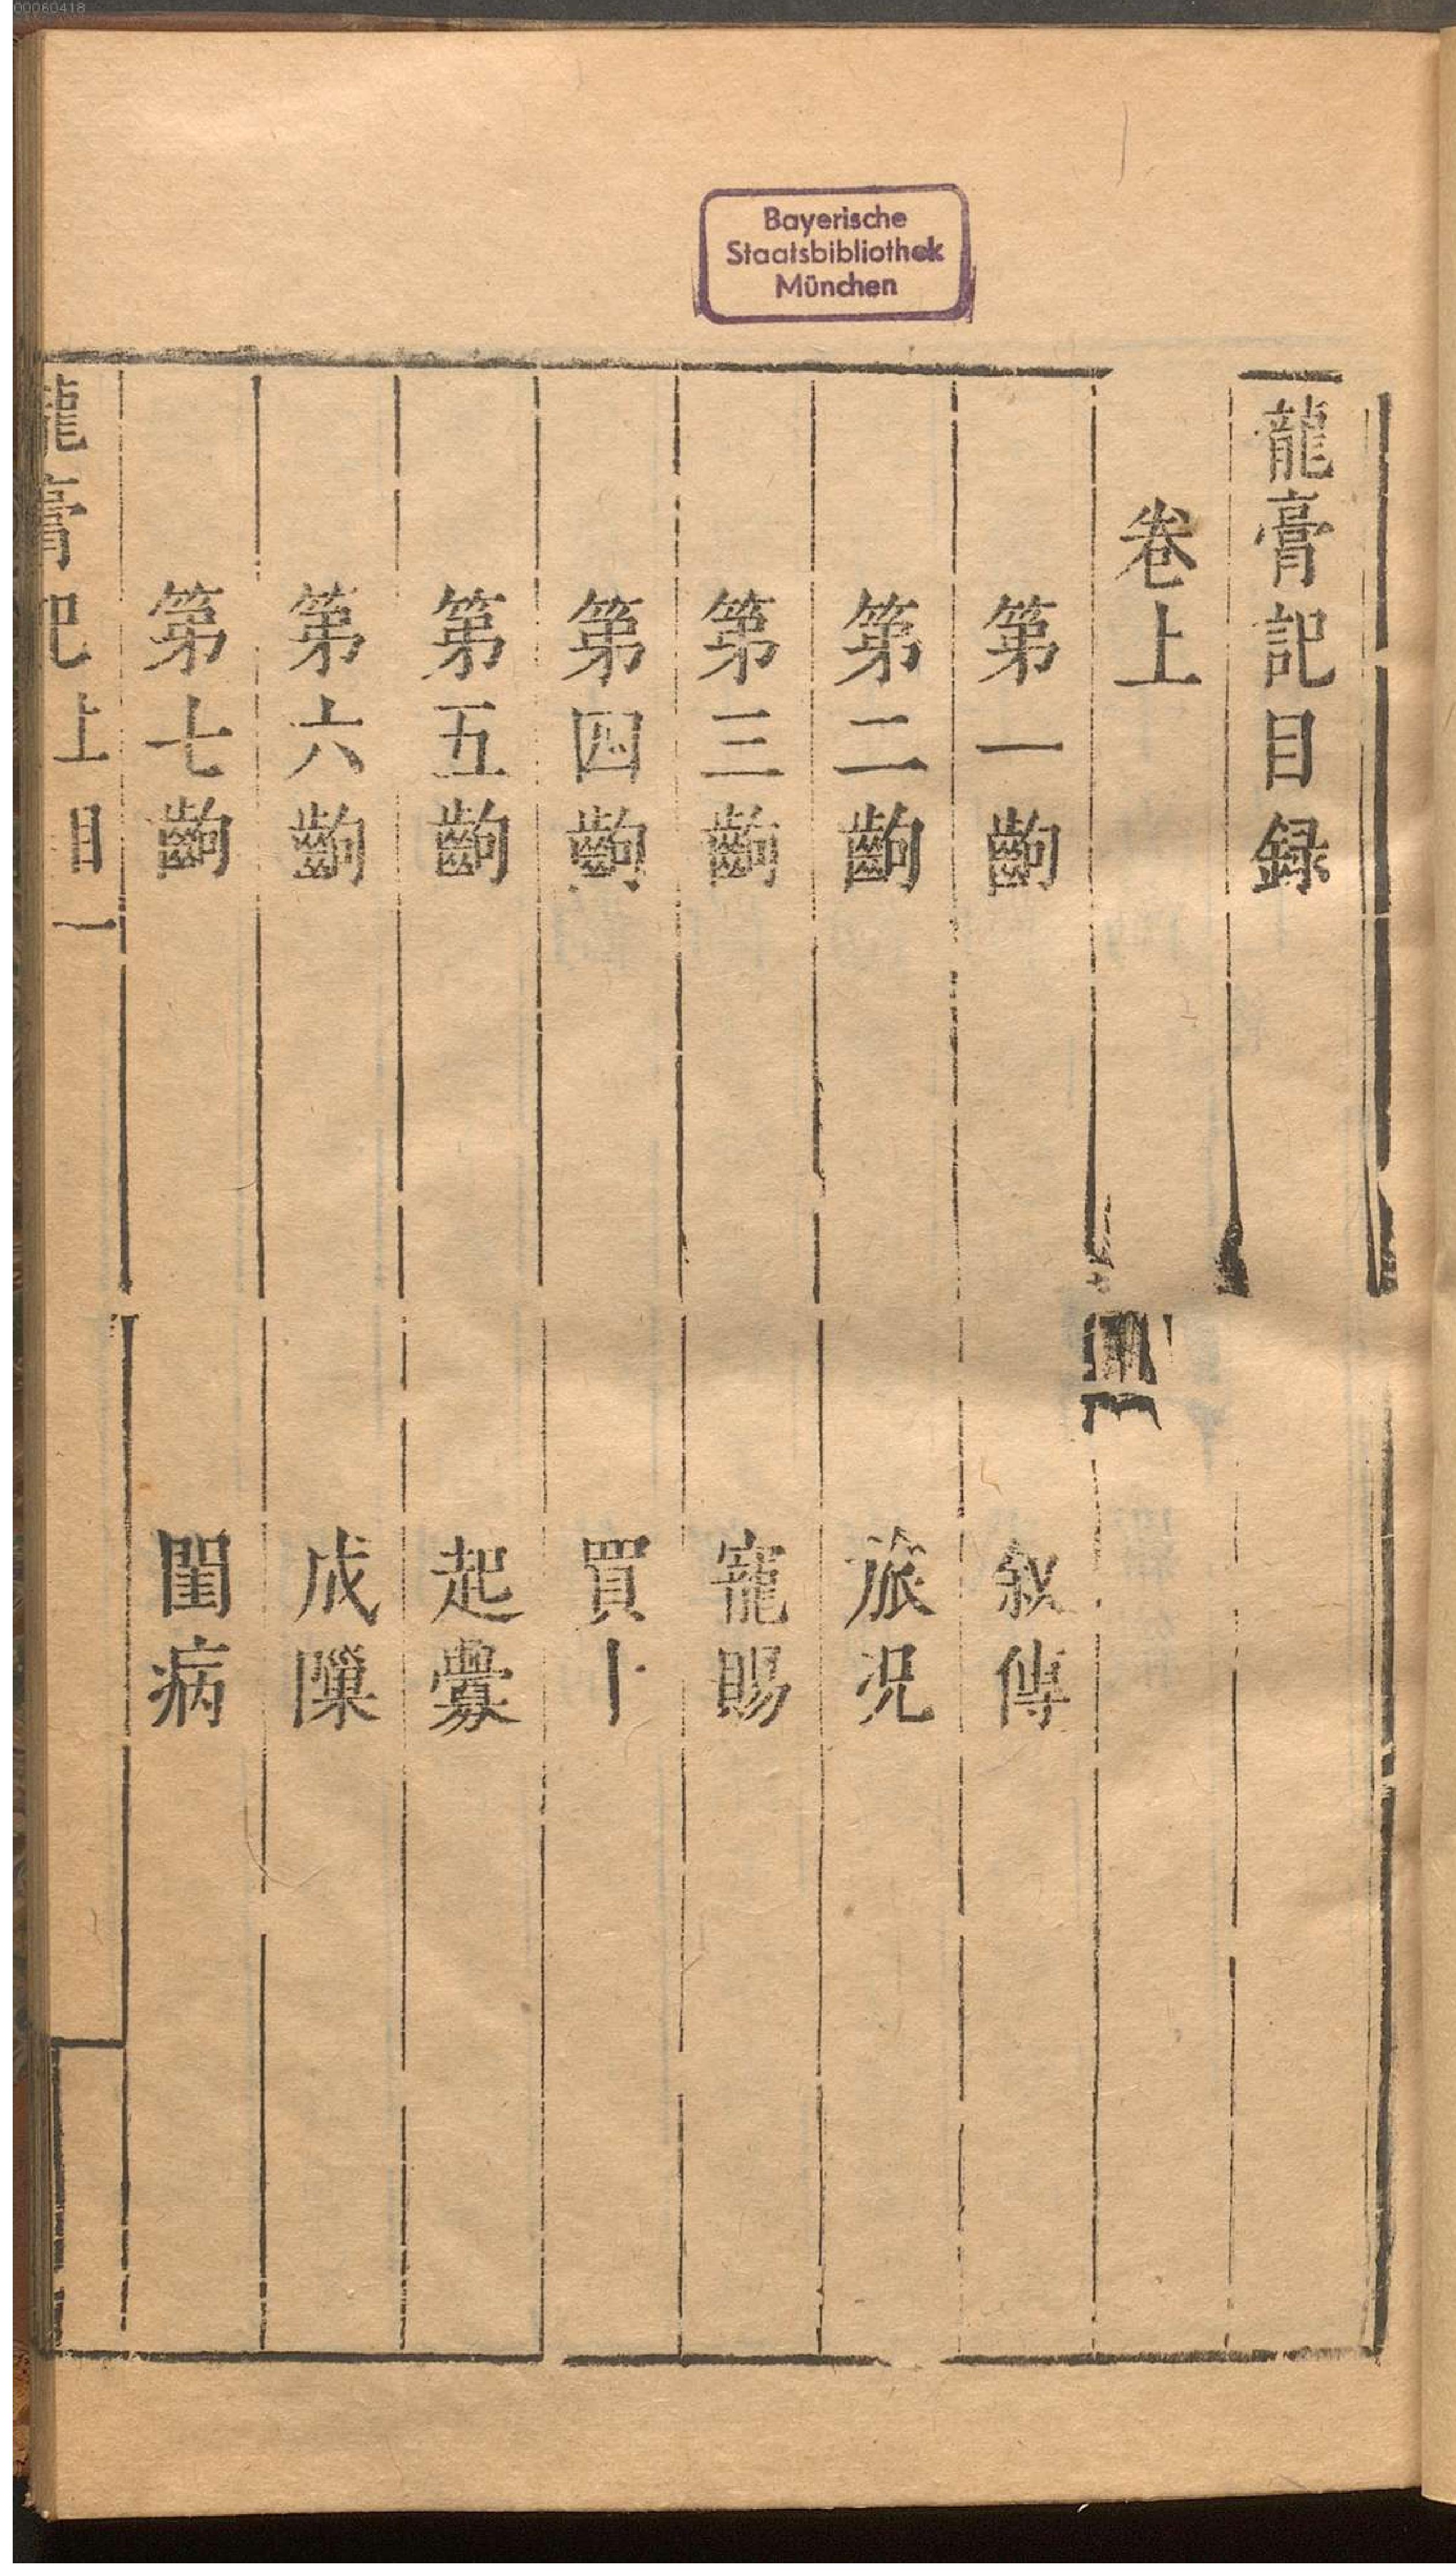 00060418
Bayerische
Staatsbibliothek
München
龍膏記目録
卷上
第一齣 叙傳
第二齣 旅况
第三齣 寵賜
第四齣 買卜
第五齣 起釁
第六齣 成隟
第七齣 閨病
龍膏記上目一